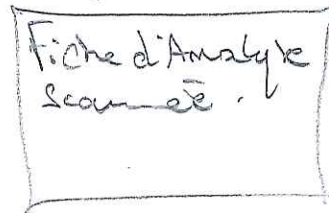 Fiche d'Analyse
scannée.